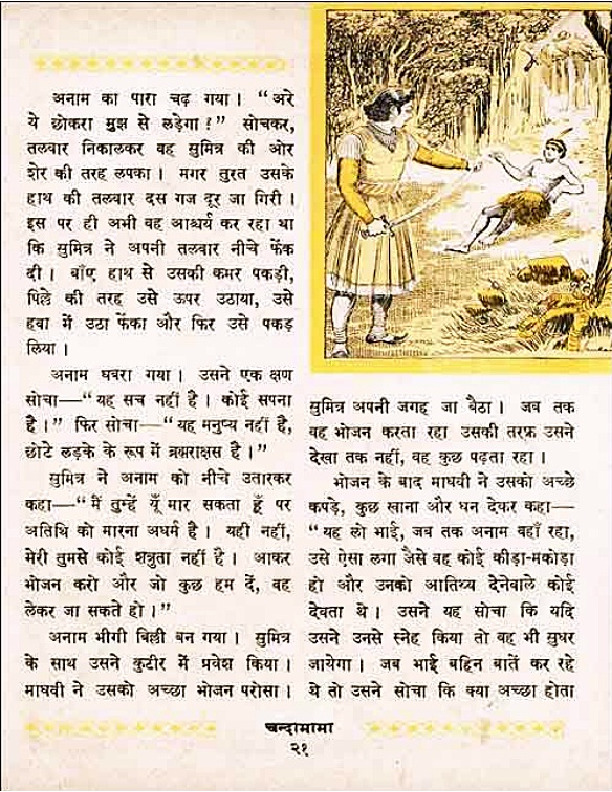 अनाम का पारा चढ़ गया। “अरे
ये छोकरा मुझ से लड़ेगा!” सोचकर,
तलवार निकालकर वह सुमित्र की ओर
शेर की तरह लपका। मगर तुरत उसके
हाथ की तलवार दस गज दूर जा गिरी।
इस पर ही अभी वह आश्चर्य कर रहा था
कि सुमित्र ने अपनी तलवार नीचे फेंक
दी। बाँए हाथ से उसकी कमर पकड़ी,
पिल्ले की तरह उसे ऊपर उठाया, उसे
हवा में उठा फेंका और फिर उसे पकड़
लिया।
अनाम घबरा गया। उसने एक क्षण
सोचा—“यह सच नहीं है। कोई सपना
है।” फिर सोचा—“यह मनुष्य नहीं है,
छोटे लड़के के रूप में ब्रह्मराक्षस है।”
सुमित्र ने अनाम को नीचे उतारकर
कहा—“मैं तुम्हें यूँ मार सकता हूँ पर
अतिथि को मारना अधर्म है। यही नहीं,
मेरी तुमसे कोई शत्रुता नहीं है। आकर
भोजन करो और जो कुछ हम दें, वह
लेकर जा सकते हो।”
अनाम भीगी बिल्ली बन गया। सुमित्र
के साथ उसने कुटीर में प्रवेश किया।
माधवी ने उसको अच्छा भोजन परोसा।
सुमित्र अपनी जगह जा बैठा। जब तक
वह भोजन करता रहा उसकी तरफ़ उसने
देखा तक नहीं, वह कुछ पढ़ता रहा।
भोजन के बाद माधवी ने उसको अच्छे
कपड़े, कुछ खाना और धन देकर कहा—
“यह लो भाई, जब तक अनाम वहाँ रहा,
उसे ऐसा लगा जैसे वह कोई कीड़ा-मकोड़ा
हो और उनको आतिथ्य देनेवाले कोई
देवता थे। उसने यह सोचा कि यदि
उसने उनसे स्नेह किया तो वह भी सुधर
जायेगा। जब भाई बहिन बातें कर रहे
थे तो उसने सोचा कि क्या अच्छा होता
चन्दामामा
२१